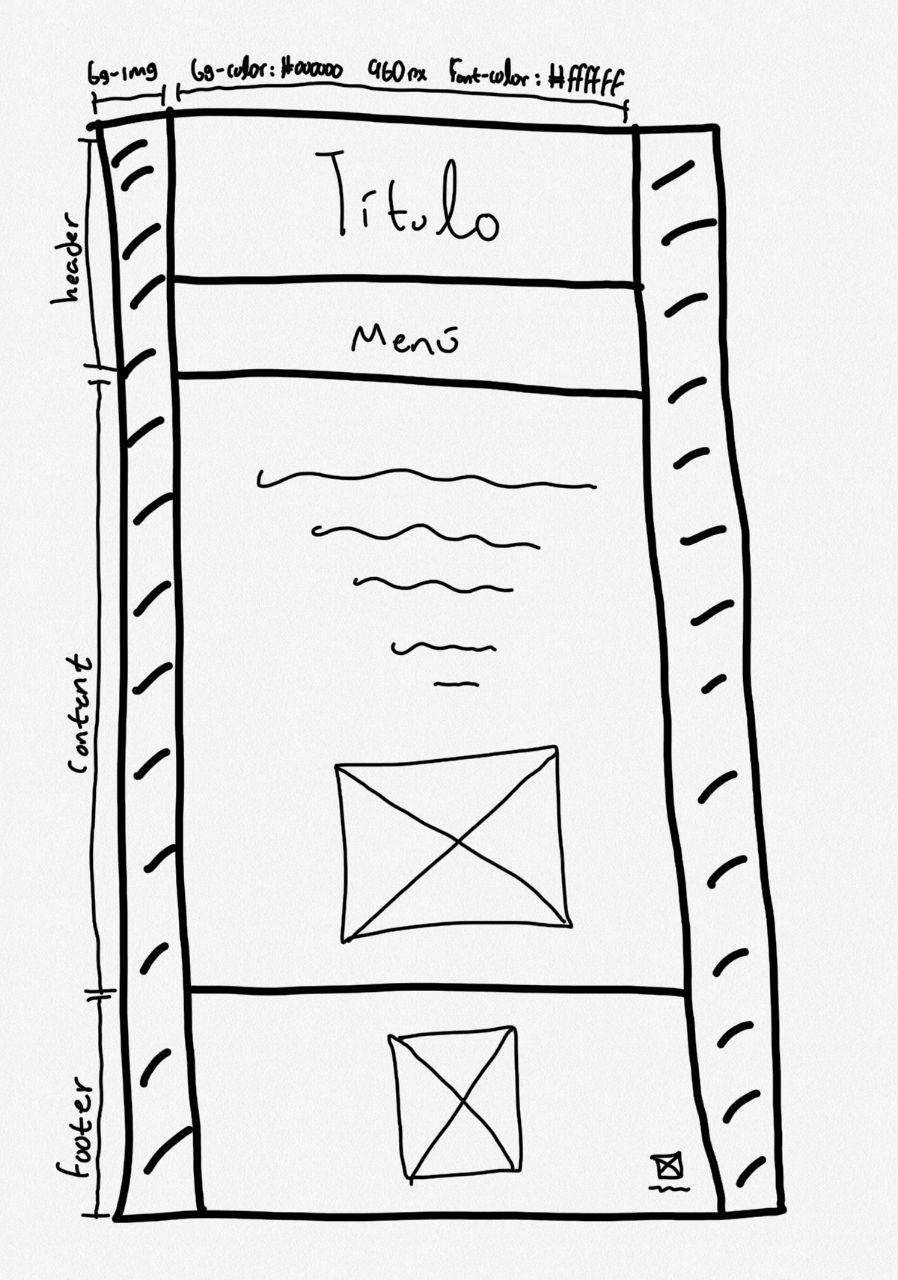 bg-img bg-color: #000000 960px Font-color: #ffffff
header
Título
Menú
content
footer